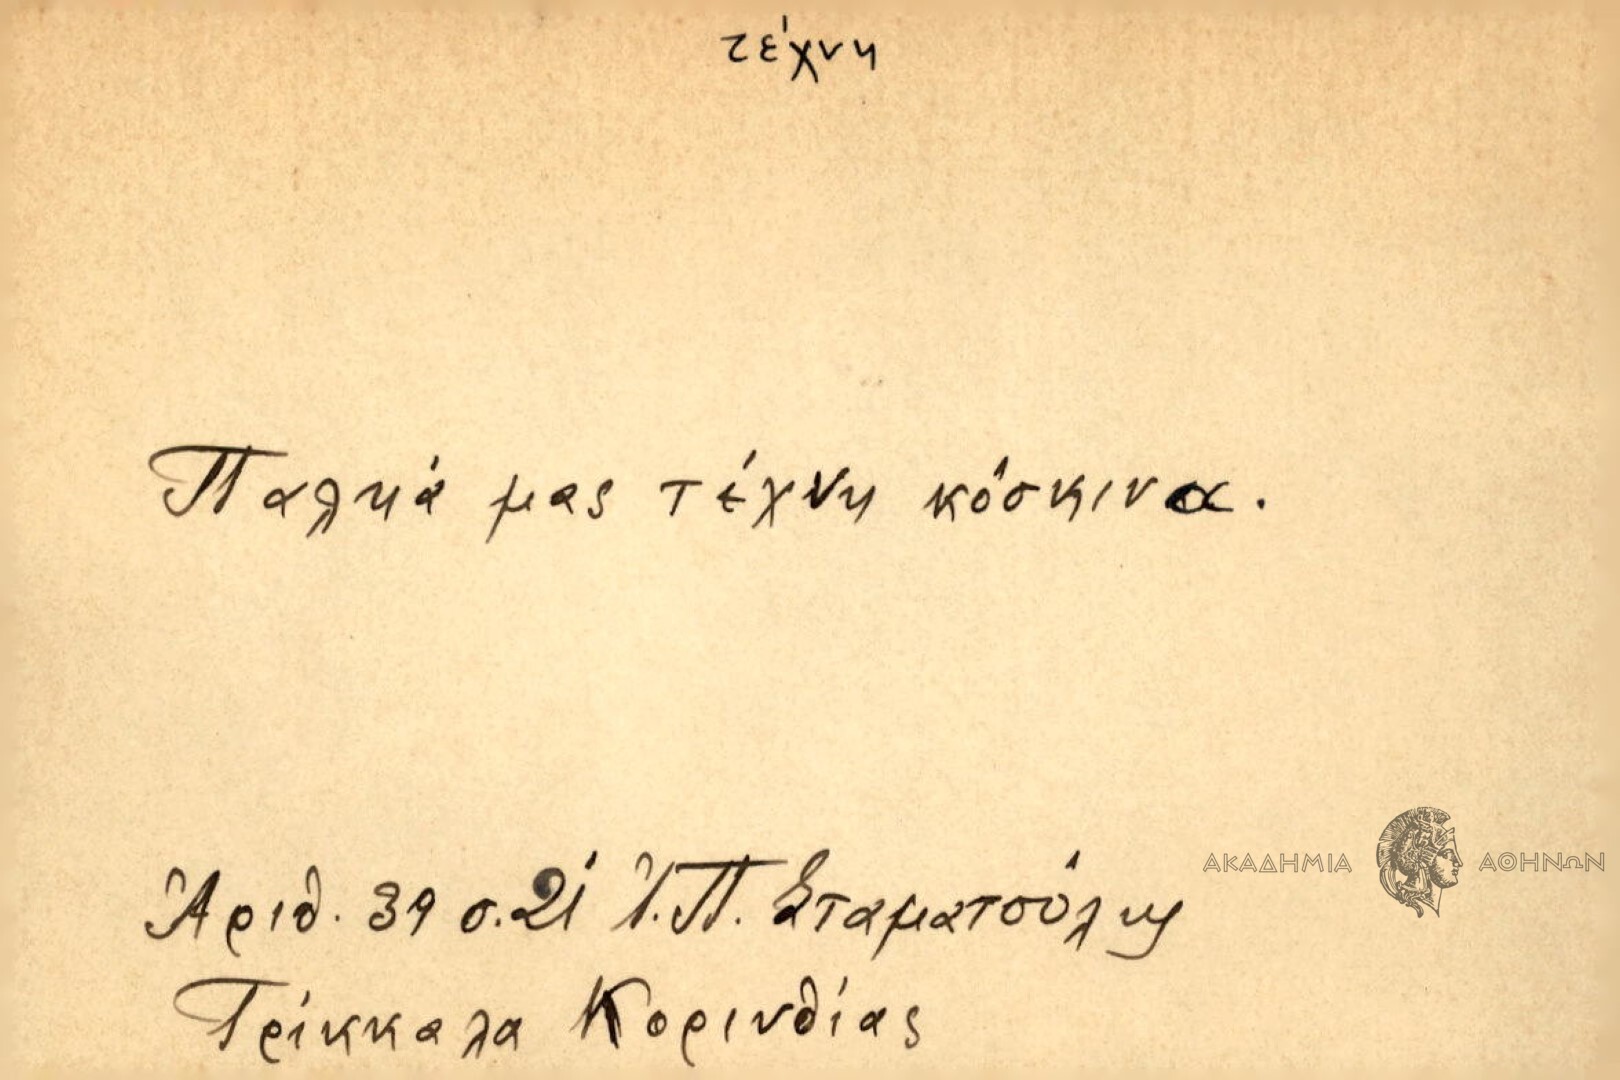 τέχνη
Παληά μας τέχνη κόσκινα.
Ἀριθ. 39 σ. 21 Ἰ. Π. Σταματούλης
Τρίκκαλα Κορινθίας
ΑΚΑΔΗΜΙΑ ΑΘΗΝΩΝ